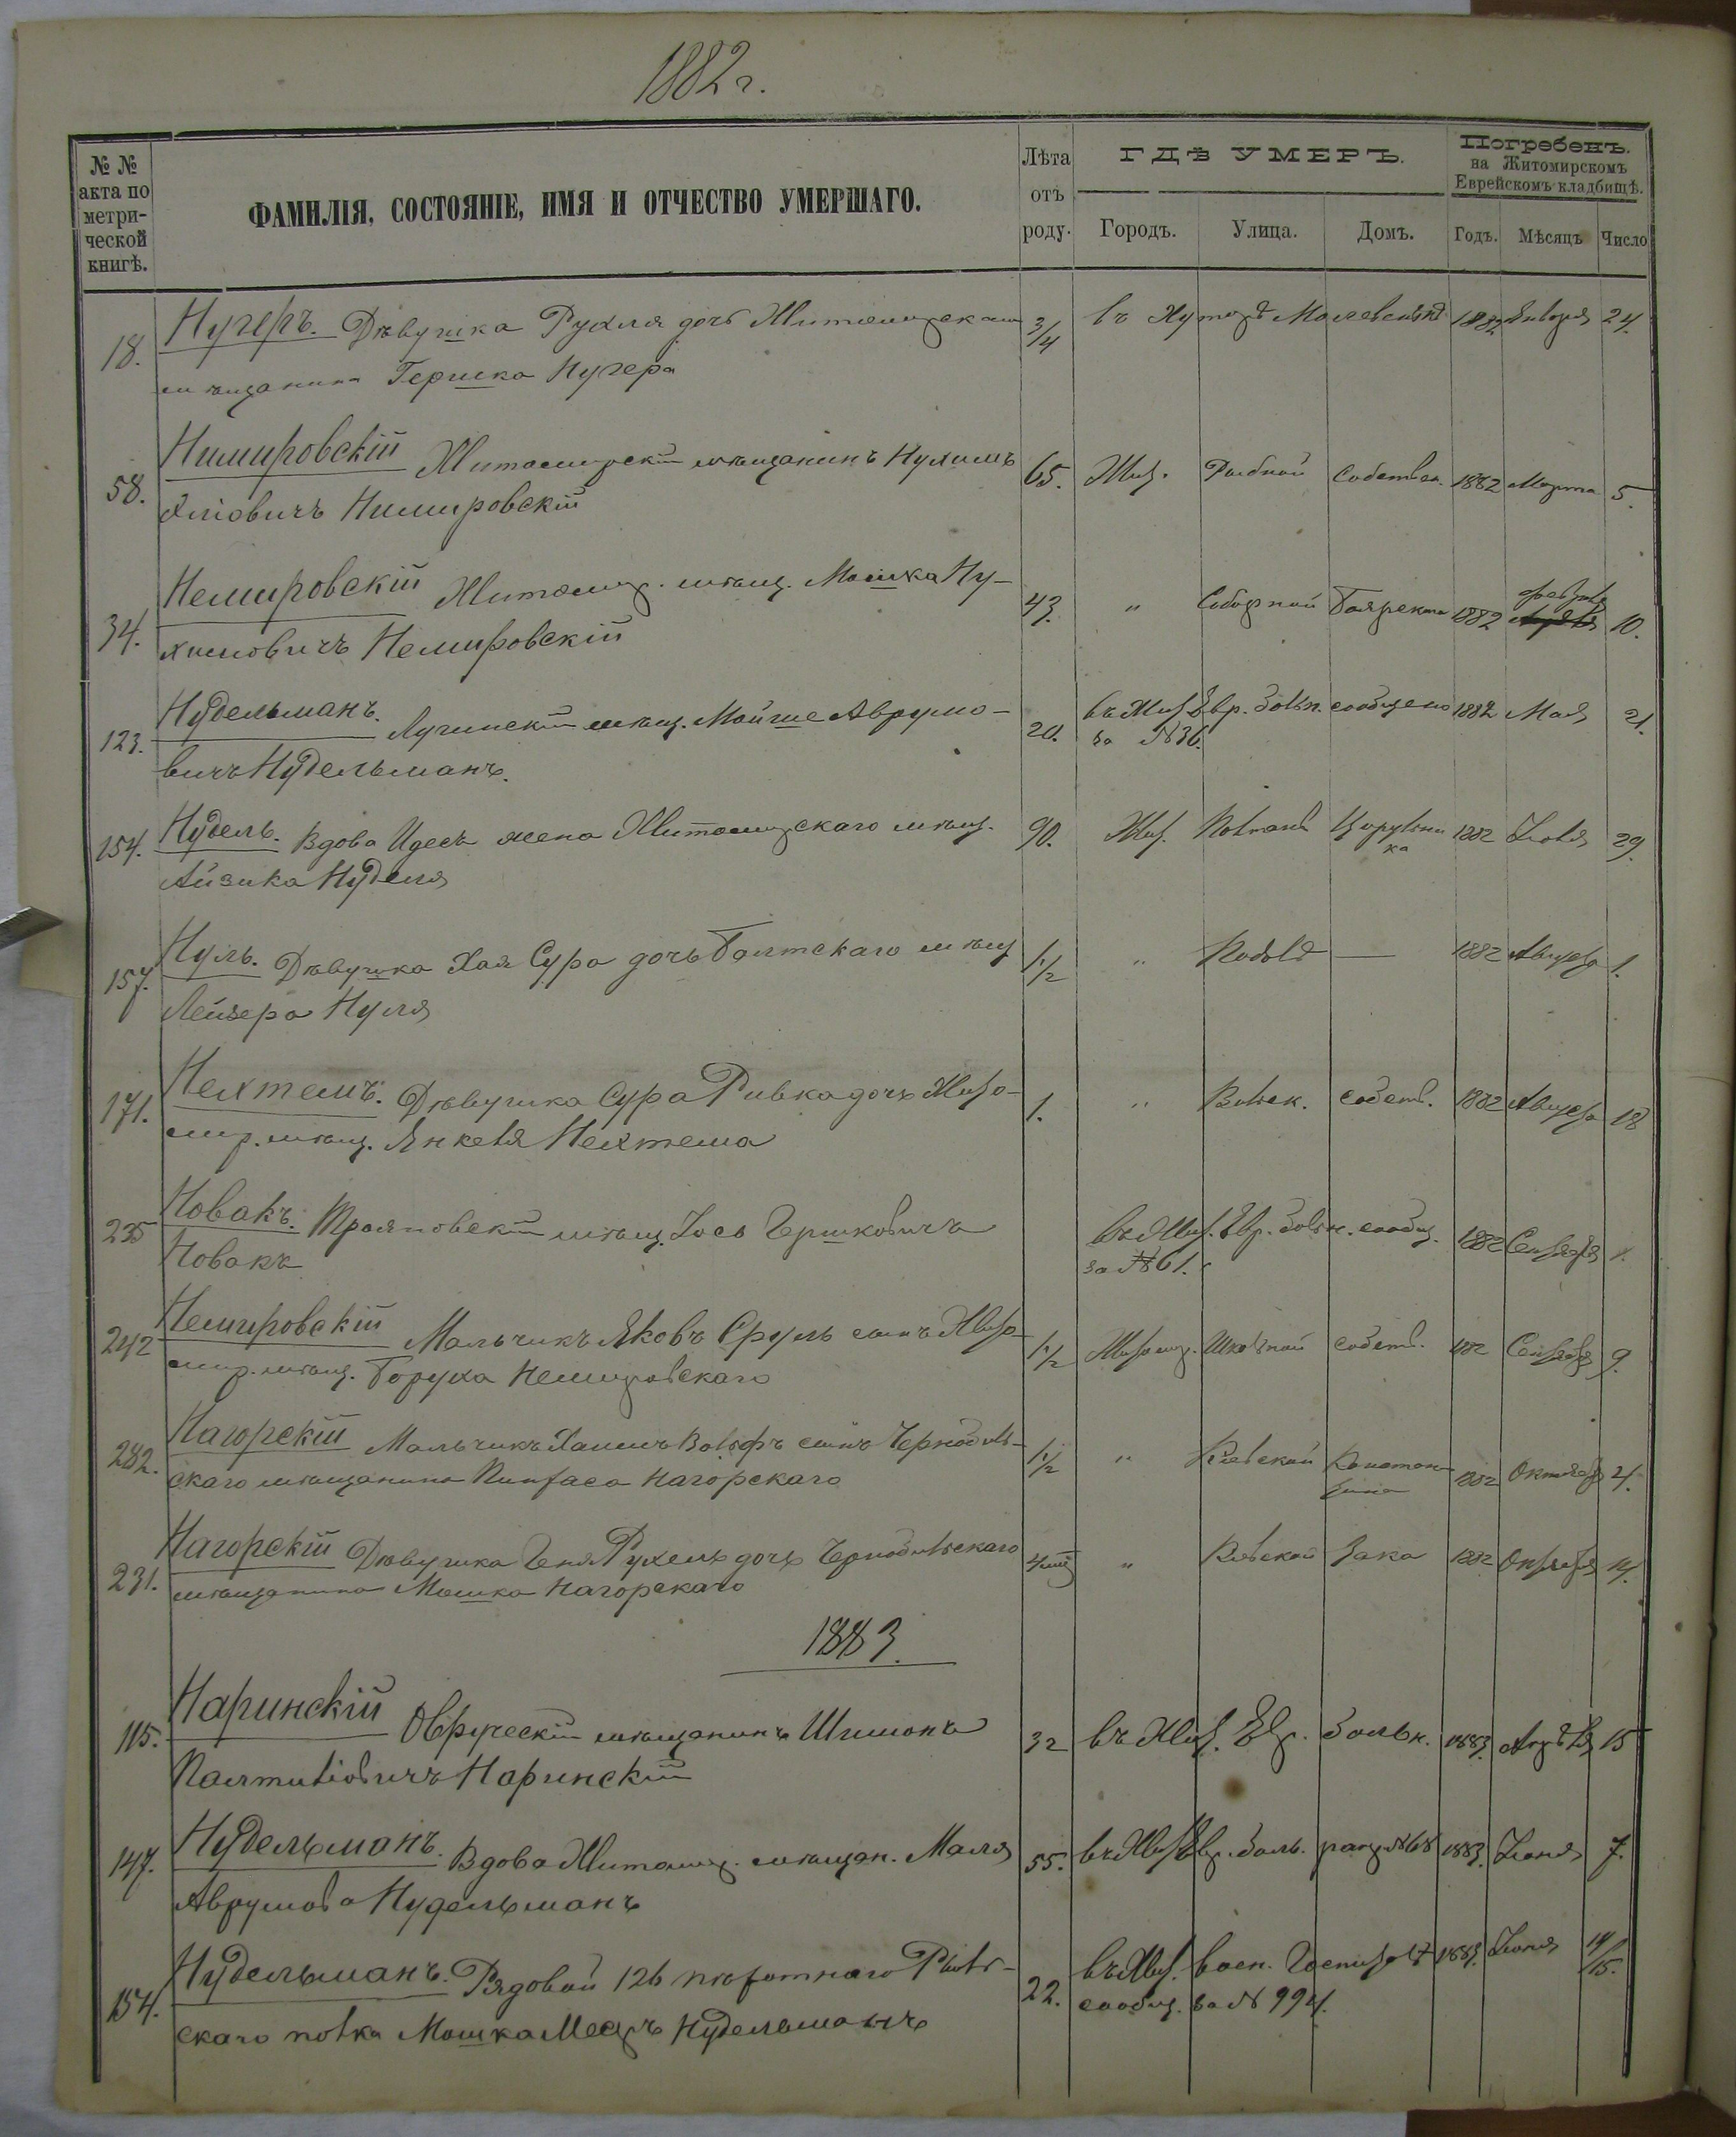 1882 г.
№ №
акта по
метри-
ческой
книгѣ.
ФАМИЛІЯ, СОСТОЯНІЕ, ИМЯ И ОТЧЕСТВО УМЕРШАГО.
Лѣта
отъ
роду.
ГДѢ УМЕРЪ.
Городъ. Улица. Домъ.
Погребенъ.
на Житомирскомъ
Еврейскомъ кладбищѣ.
Годъ. Мѣсяцъ Число
18. Нугеръ. Дѣвушка Рухля дочь Житомирскаго 3/4 въ Хуторѣ 1882 Января 24.
мѣщанина Гершка Нугера
58. Нимировскій Житомирскій мѣщанинъ Нухимъ 65. Жит. Рыбной Собствен. 1882 Марта 5.
Нимировскій
34. Немировскій Житомир. мѣщ. Мошка Ну- 43. " Соборной Боярскаго 1882 Февраля 10.
химовичъ Немировскій
123. Нудельманъ. мѣщ. Мойше Аврумо- 20. въ Жит. Евр. больн. сообщено 1882 Мая 21.
вичъ Нудельманъ. за №36.
154. Нудель. Вдова Идесъ жена Житомирскаго мѣщ. 90. Жит. 1882 Іюля 29.
Айзика Нуделя
157. Нуль. Дѣвушка Хая Сура дочь Балтскаго мѣщ 1 1/2 " — 1882 Августа 1.
Лейзера Нуля
171. Нехтемъ. Дѣвушка Сура Ривка дочь Жито- 1. " собств. 1882 Августа 18
мир. мѣщ. Янкеля Нехтема
235 Новакъ. Трояновскій мѣщ. Іось Гершковичъ въ Жит. Евр. больн. сообщ. 1882 Сентября
Новакъ за №61.
242 Немировскій Мальчикъ Яковъ Сруль сынъ Жито- 1 1/2 Житомир. Школьной собств. 1882 Сентября 9.
мир. мѣщ. Боруха Немировскаго
282. Нагорскій Мальчикъ Хаимъ Вольфъ сынъ Чернобыль- 1 1/2 " Кіевской 1882 Октября 4.
скаго мѣщанина Пинхаса Нагорскаго
231. Нагорскій Дѣвушка Геня Рухель дочь Чернобыльскаго " Кіевской Зака 1882 Октября 14.
мѣщанина Мошка Нагорскаго
1883.
115. Наринскій Овруческій мѣщанинъ Шимонъ 32 въ Жит. Евр. больн. 1883. Апрѣля 15
Палтиеліовичъ Наринскій
147. Нудельманъ. Вдова Житомир. мѣщан. Маля 55. въ Жит. Евр. боль. рапр. №68 1883. Іюня 7.
Аврумова Нудельманъ
154. Нудельманъ. Рядовой 126 пѣхотнаго Рыль- 22. въ Жит. воен. Госпит. 1883. Іюня 14/15.
скаго полка Мошка Меер Нудельманъ сообщ. за № 994.